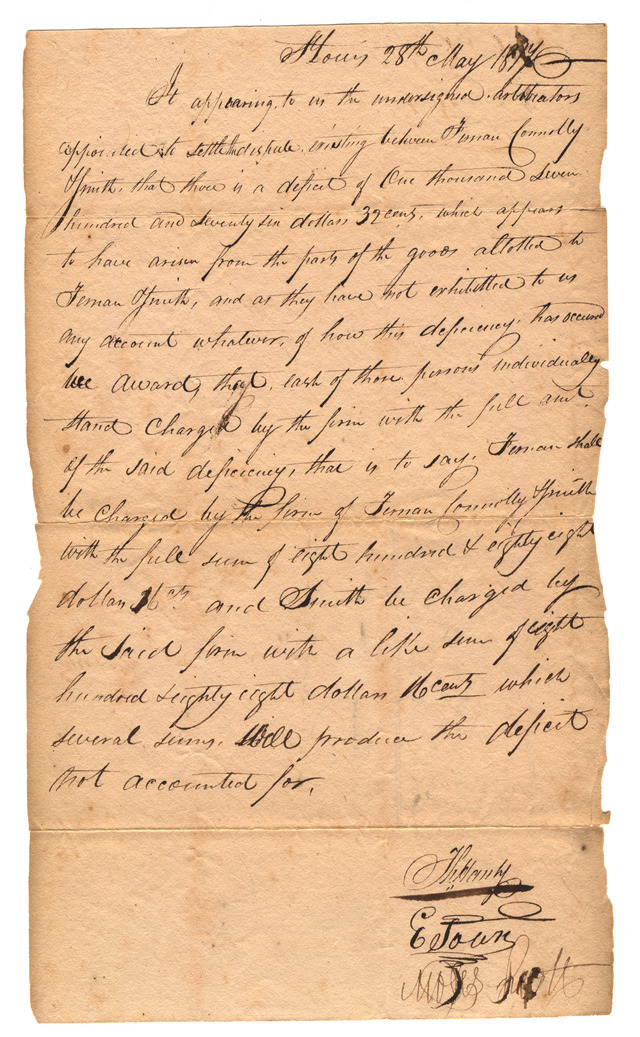 St Louis 28th May 18
It appearing to us the undersigned arbitrators
appointed to settle the dispute existing between Ternan Connolly
& Smith, that there is a deficit of One thousand Seven
hundred and Seventy six dollars 32 cents, which appears
to have arisen from the parts of the goods allotted to
Ternan & Smith, and as they have not exhibitted to us
any account whatever, of how this deficiency has occured
we award, that each of those persons individually
stand Charged by the firm with the full amt.
of the said deficiency, that is to say, Ternan shall
be charged by the firm of Ternan Connolly & Smith
with the full sum of eight hundred & eighty eight
dollars 16 cts and Smith be charged by
the said firm with a like sum of eight
hundred & eighty eight dollars 16 cents which
several sums, will produce the deficit
not accounted for.
E Town
Moses Scott